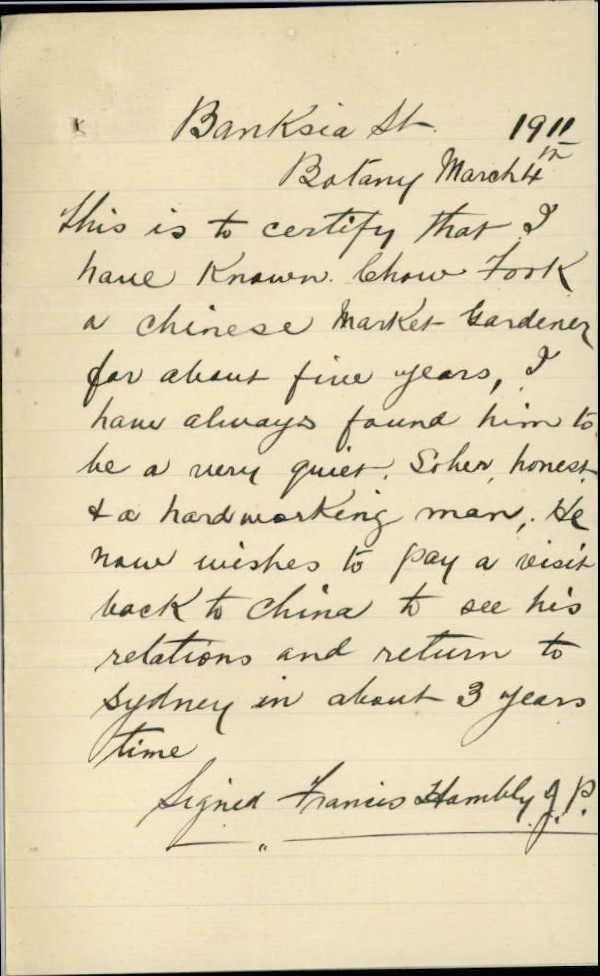 Banksia St. 1911
Botany March 4th
This is to certify that I
have Known Chow Fook
a chinese Market Gardener
for about five years, I
have always found him to
be a very quiet, Sober, honest,
& a hardworking man, He
now wishes to pay a visit
back to China to see his
relations and return to
Sydney in about 3 years
time
Signed Francis Hambly J.P.